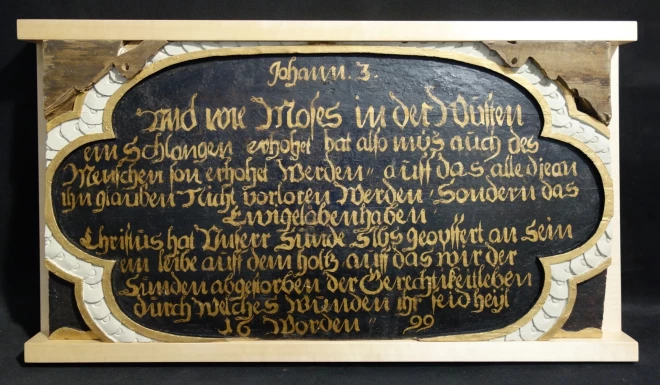 Johann. 3.
und wie Moses in der Wüsten
ein Schlangen erhohet hat also mus auch des
Menschen son erhohet Werden auff das alle die an
ihn glauben Nicht vorloren Werden Sondern das
Ewigelaben haben
Christus hat Unserr Sünde Slbs geopffert an Sein
em leibe auff dem holtz auff das wir der
Sünden abgestorben der Gerechtikeit leben
dürch Welches Wunden ihr seid heyl
16 Worden 99